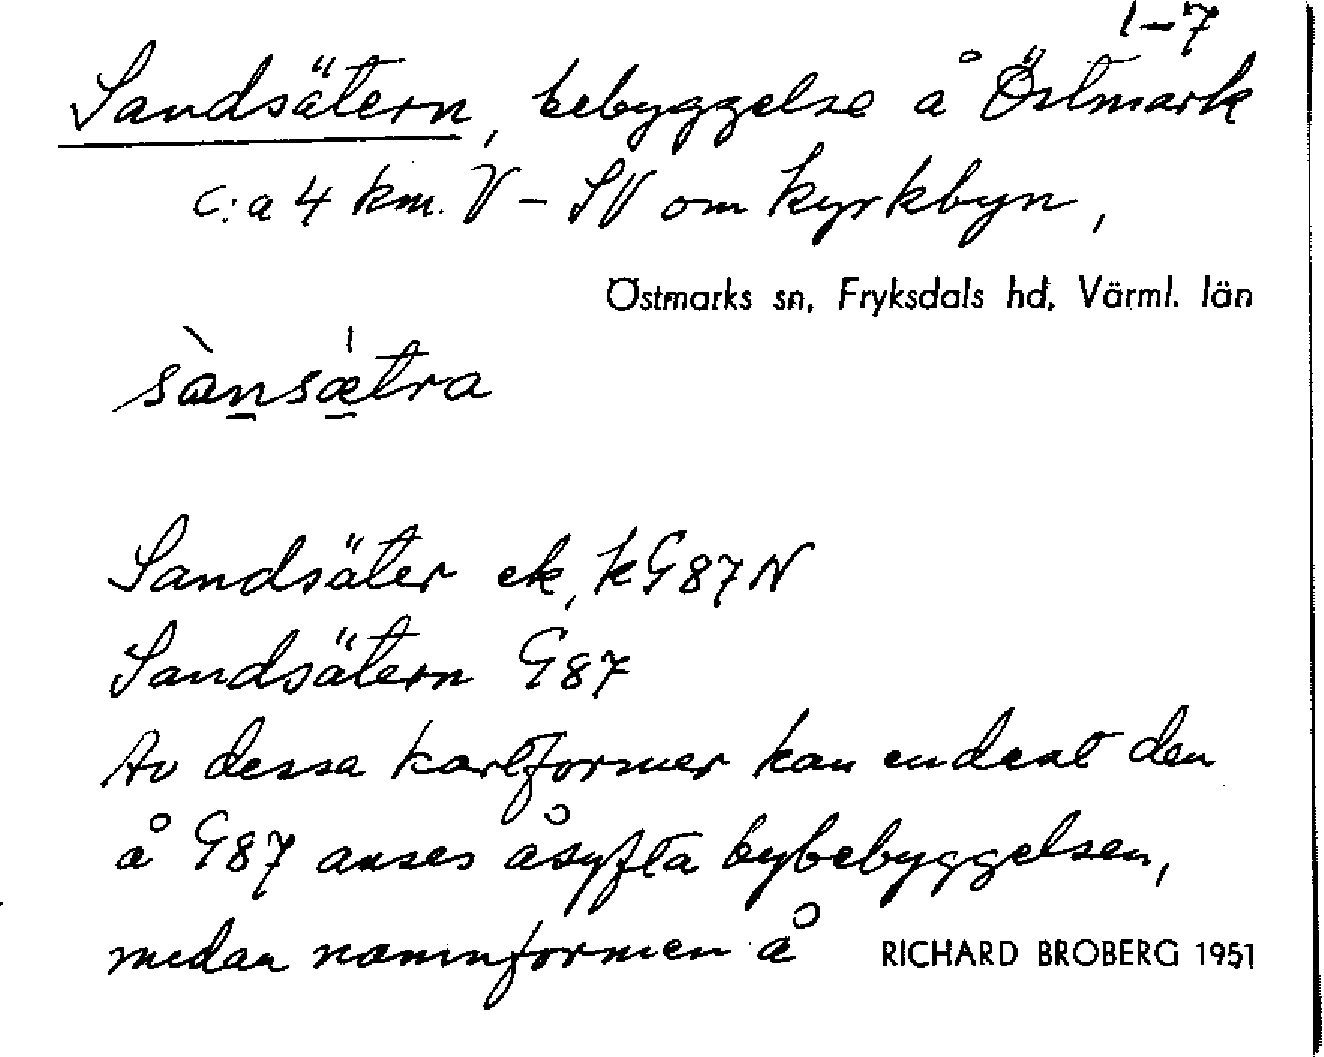 1-7
Sandsätern, bebyggelse å Östmark
c:a 4 km. V - SV om kyrkbyn,
Östmarks sn, Fryksdals hd, Värml. län
sànsǽtra
Sandsäter ek, kG87N
Sandsätern G87
Av dessa kartformer kan endast den
å G87 anses åsyfta bybebyggelsen,
medan namnformen å
RICHARD BROBERG 1951